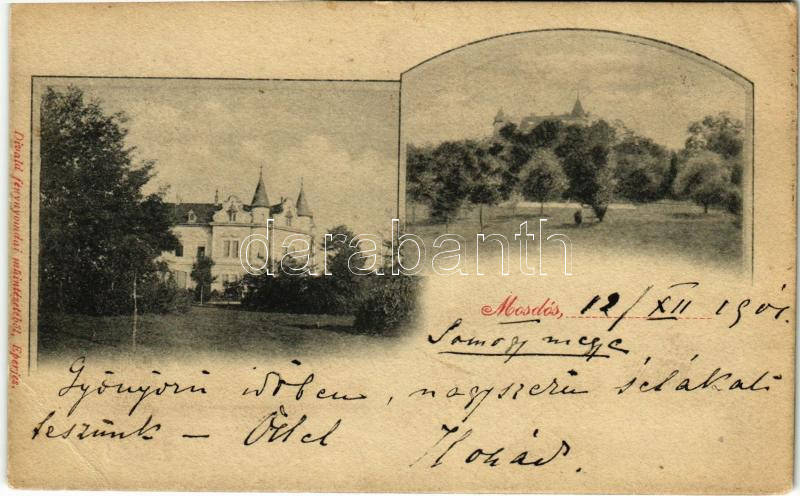 Divald fénynyomdai műintézetéből, Eperjes.
darabanth
Mosdós, 12/XII 1901
Somogy megye
Gyönyörű időben, nagyszerű sétákat
teszünk — Ölel